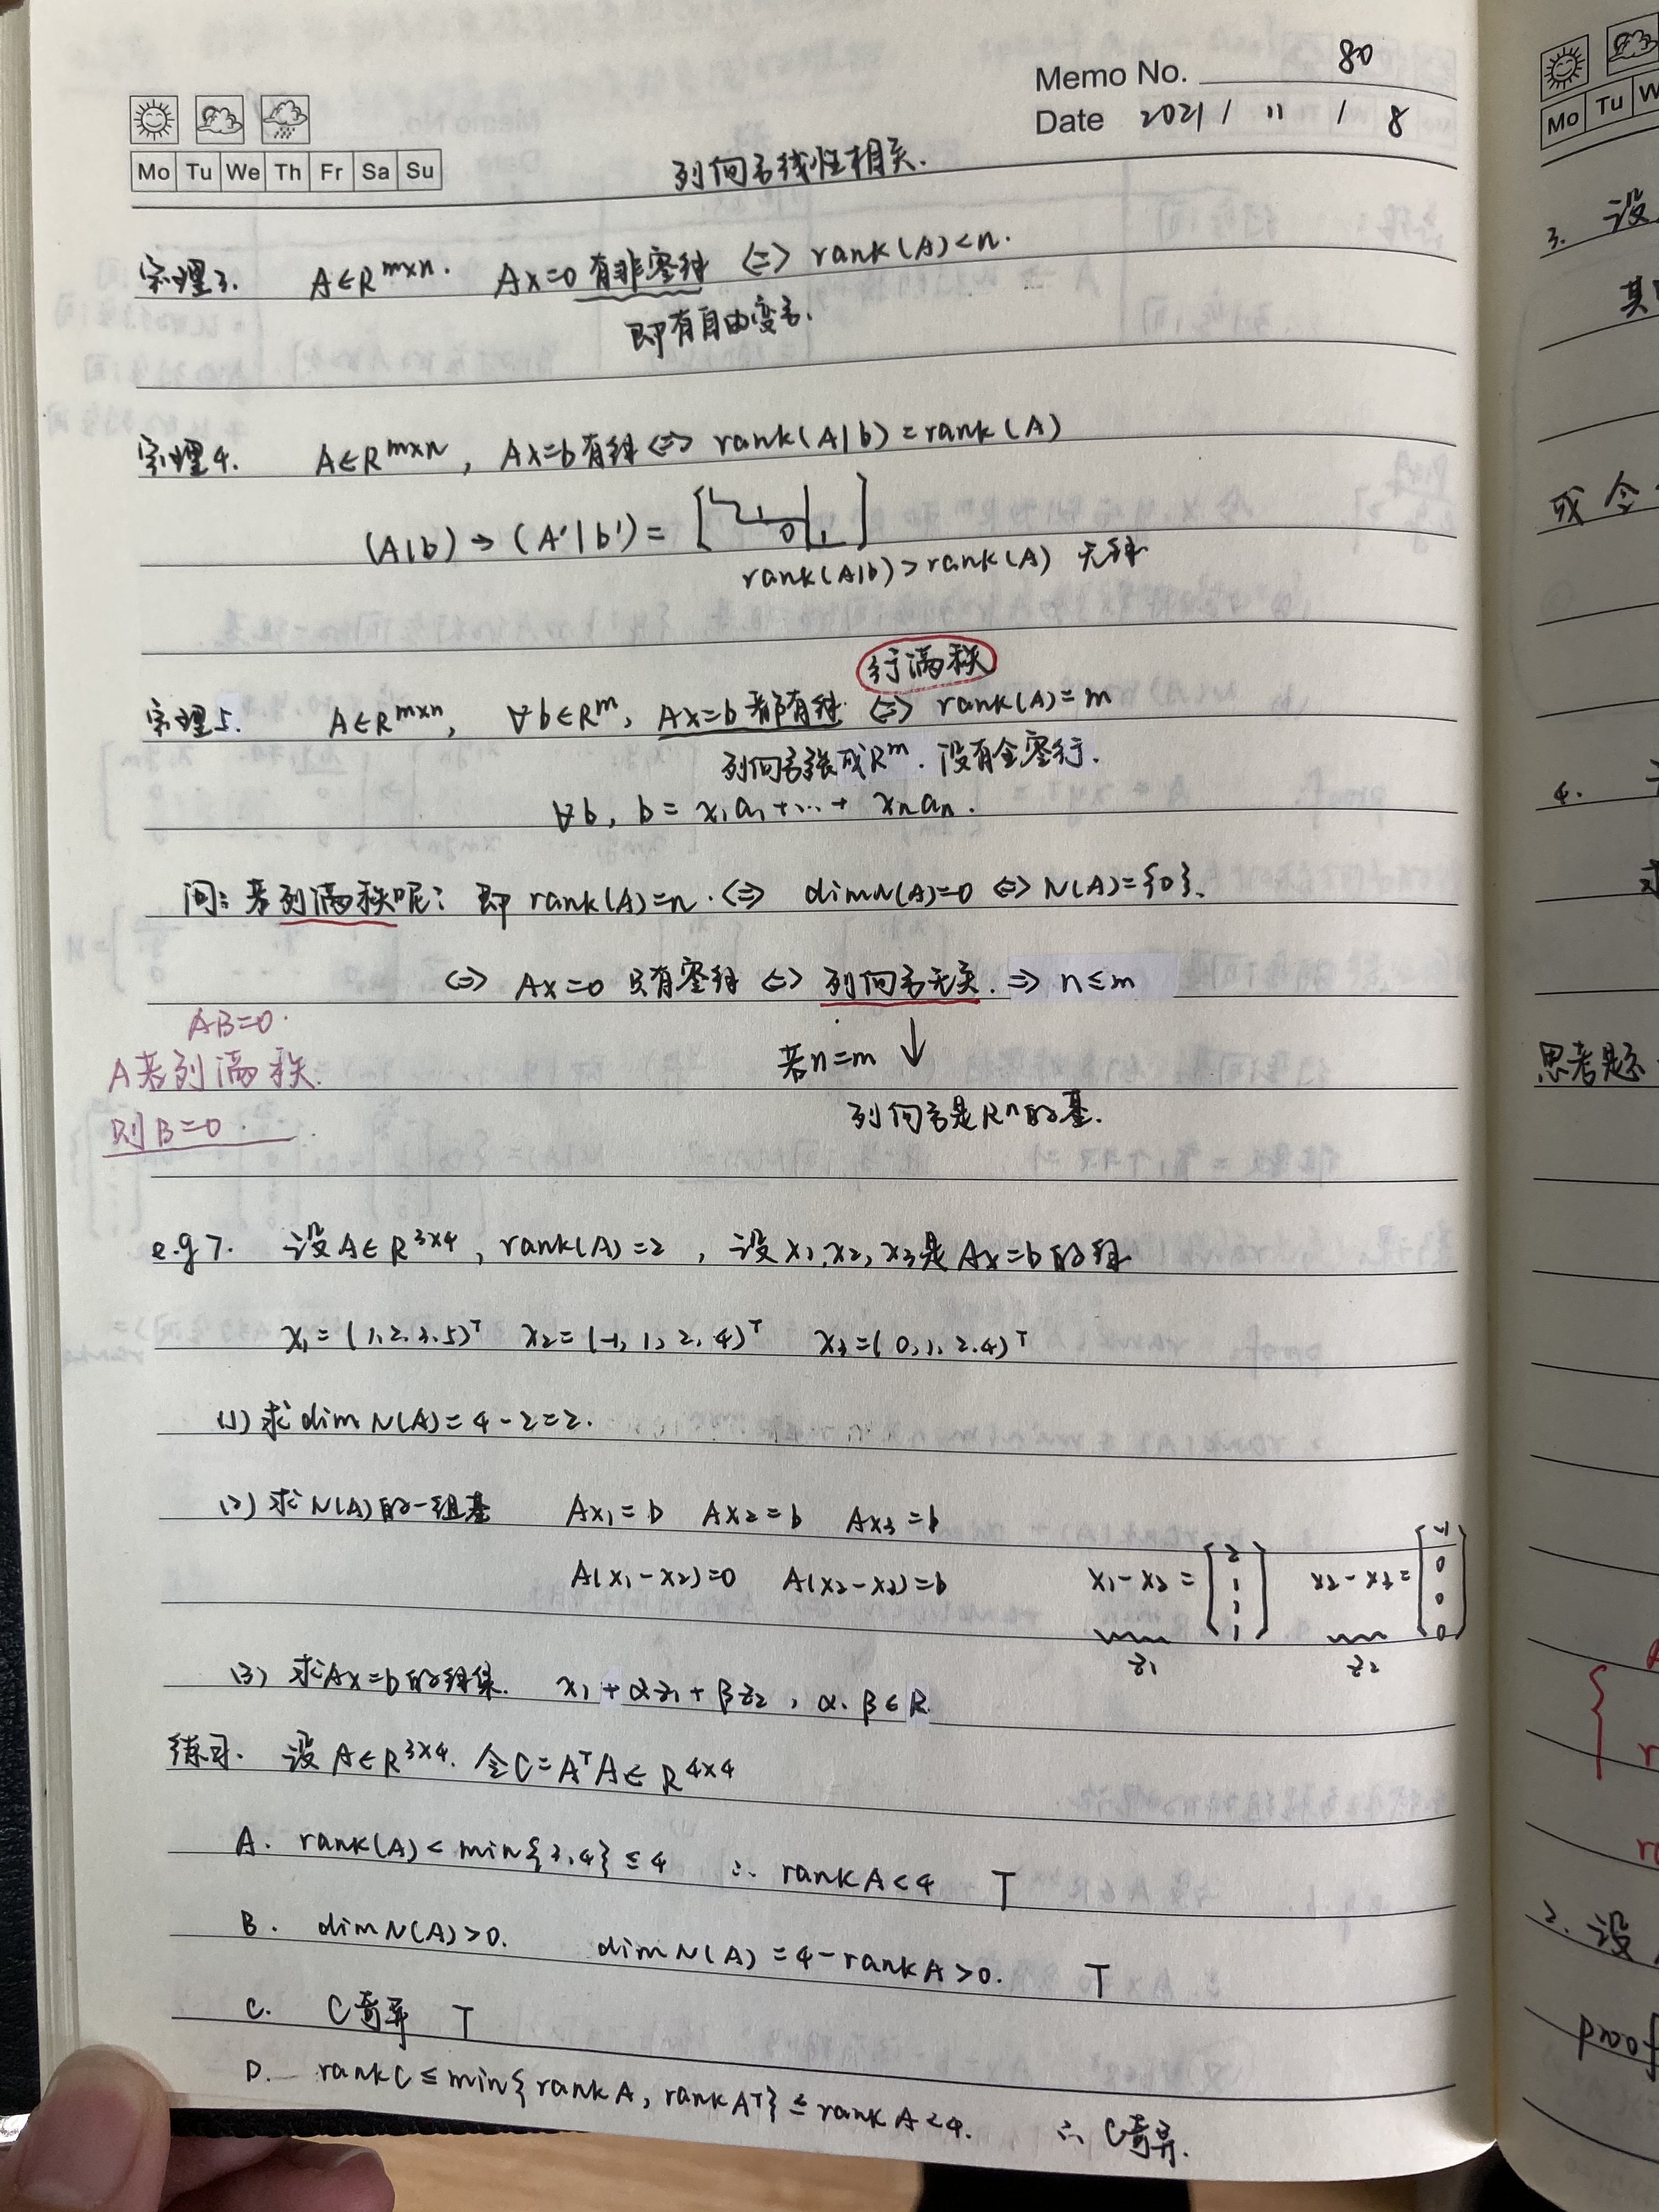 Memo No. 80
Date 2021 / 11 / 8
Mo Tu We Th Fr Sa Su
列向量线性相关.
定理3. A∈R^{m×n}. Ax=0 有非零解 ⇔ rank(A)<n.
即有自由变量.
定理4. A∈R^{m×n}, Ax=b有解 ⇔ rank(A|b)=rank(A)
(A|b) → (A'|b') = [ 1 0 | 1 ]
rank(A|b)>rank(A) 无解
行满秩
定理5. A∈R^{m×n}, ∀b∈R^m, Ax=b都有解 ⇔ rank(A)=m
列向量张成R^m. 没有全零行.
∀b, b = x₁a₁+…+ xₙaₙ.
问: 若列满秩呢: 即 rank(A)=n. ⇔ dimN(A)=0 ⇔ N(A)={0}.
⇔ Ax=0 只有零解 ⇔ 列向量无关. ⇒ n≤m
AB=0.
A若列满秩.
则B=0.
若n=m ↓
列向量是Rⁿ的基.
e.g 7. 设A∈R^{3×4}, rank(A)=2, 设x₁,x₂,x₃是Ax=b的解
x₁=(1,2,3,5)^T x₂=(-1,1,2,4)^T x₃=(0,1,2,4)^T
(1) 求dim N(A)=4-2=2.
(2) 求N(A)的一组基 Ax₁=b Ax₂=b Ax₃=b
A(x₁-x₂)=0 A(x₂-x₃)=b x₁-x₂=[2 1 1 1] x₂-x₃=[-1 0 0 0]
z₁ z₂
(3) 求Ax=b的解集. x₁+αz₁+βz₂, α.β∈R
练习. 设A∈R^{3×4}. 令C=A^TA∈R^{4×4}
A. rank(A)<min{3,4}≤4 ∴ rankA<4 T
B. dimN(A)>0. dimN(A)=4-rankA>0. T
C. C奇异 T
D. rankC≤min{rankA, rankA^T}≤rankA<4. ∴ C奇异.
Mo Tu W
3. 设
其
或 令
4.
思考题
2. 设
proof